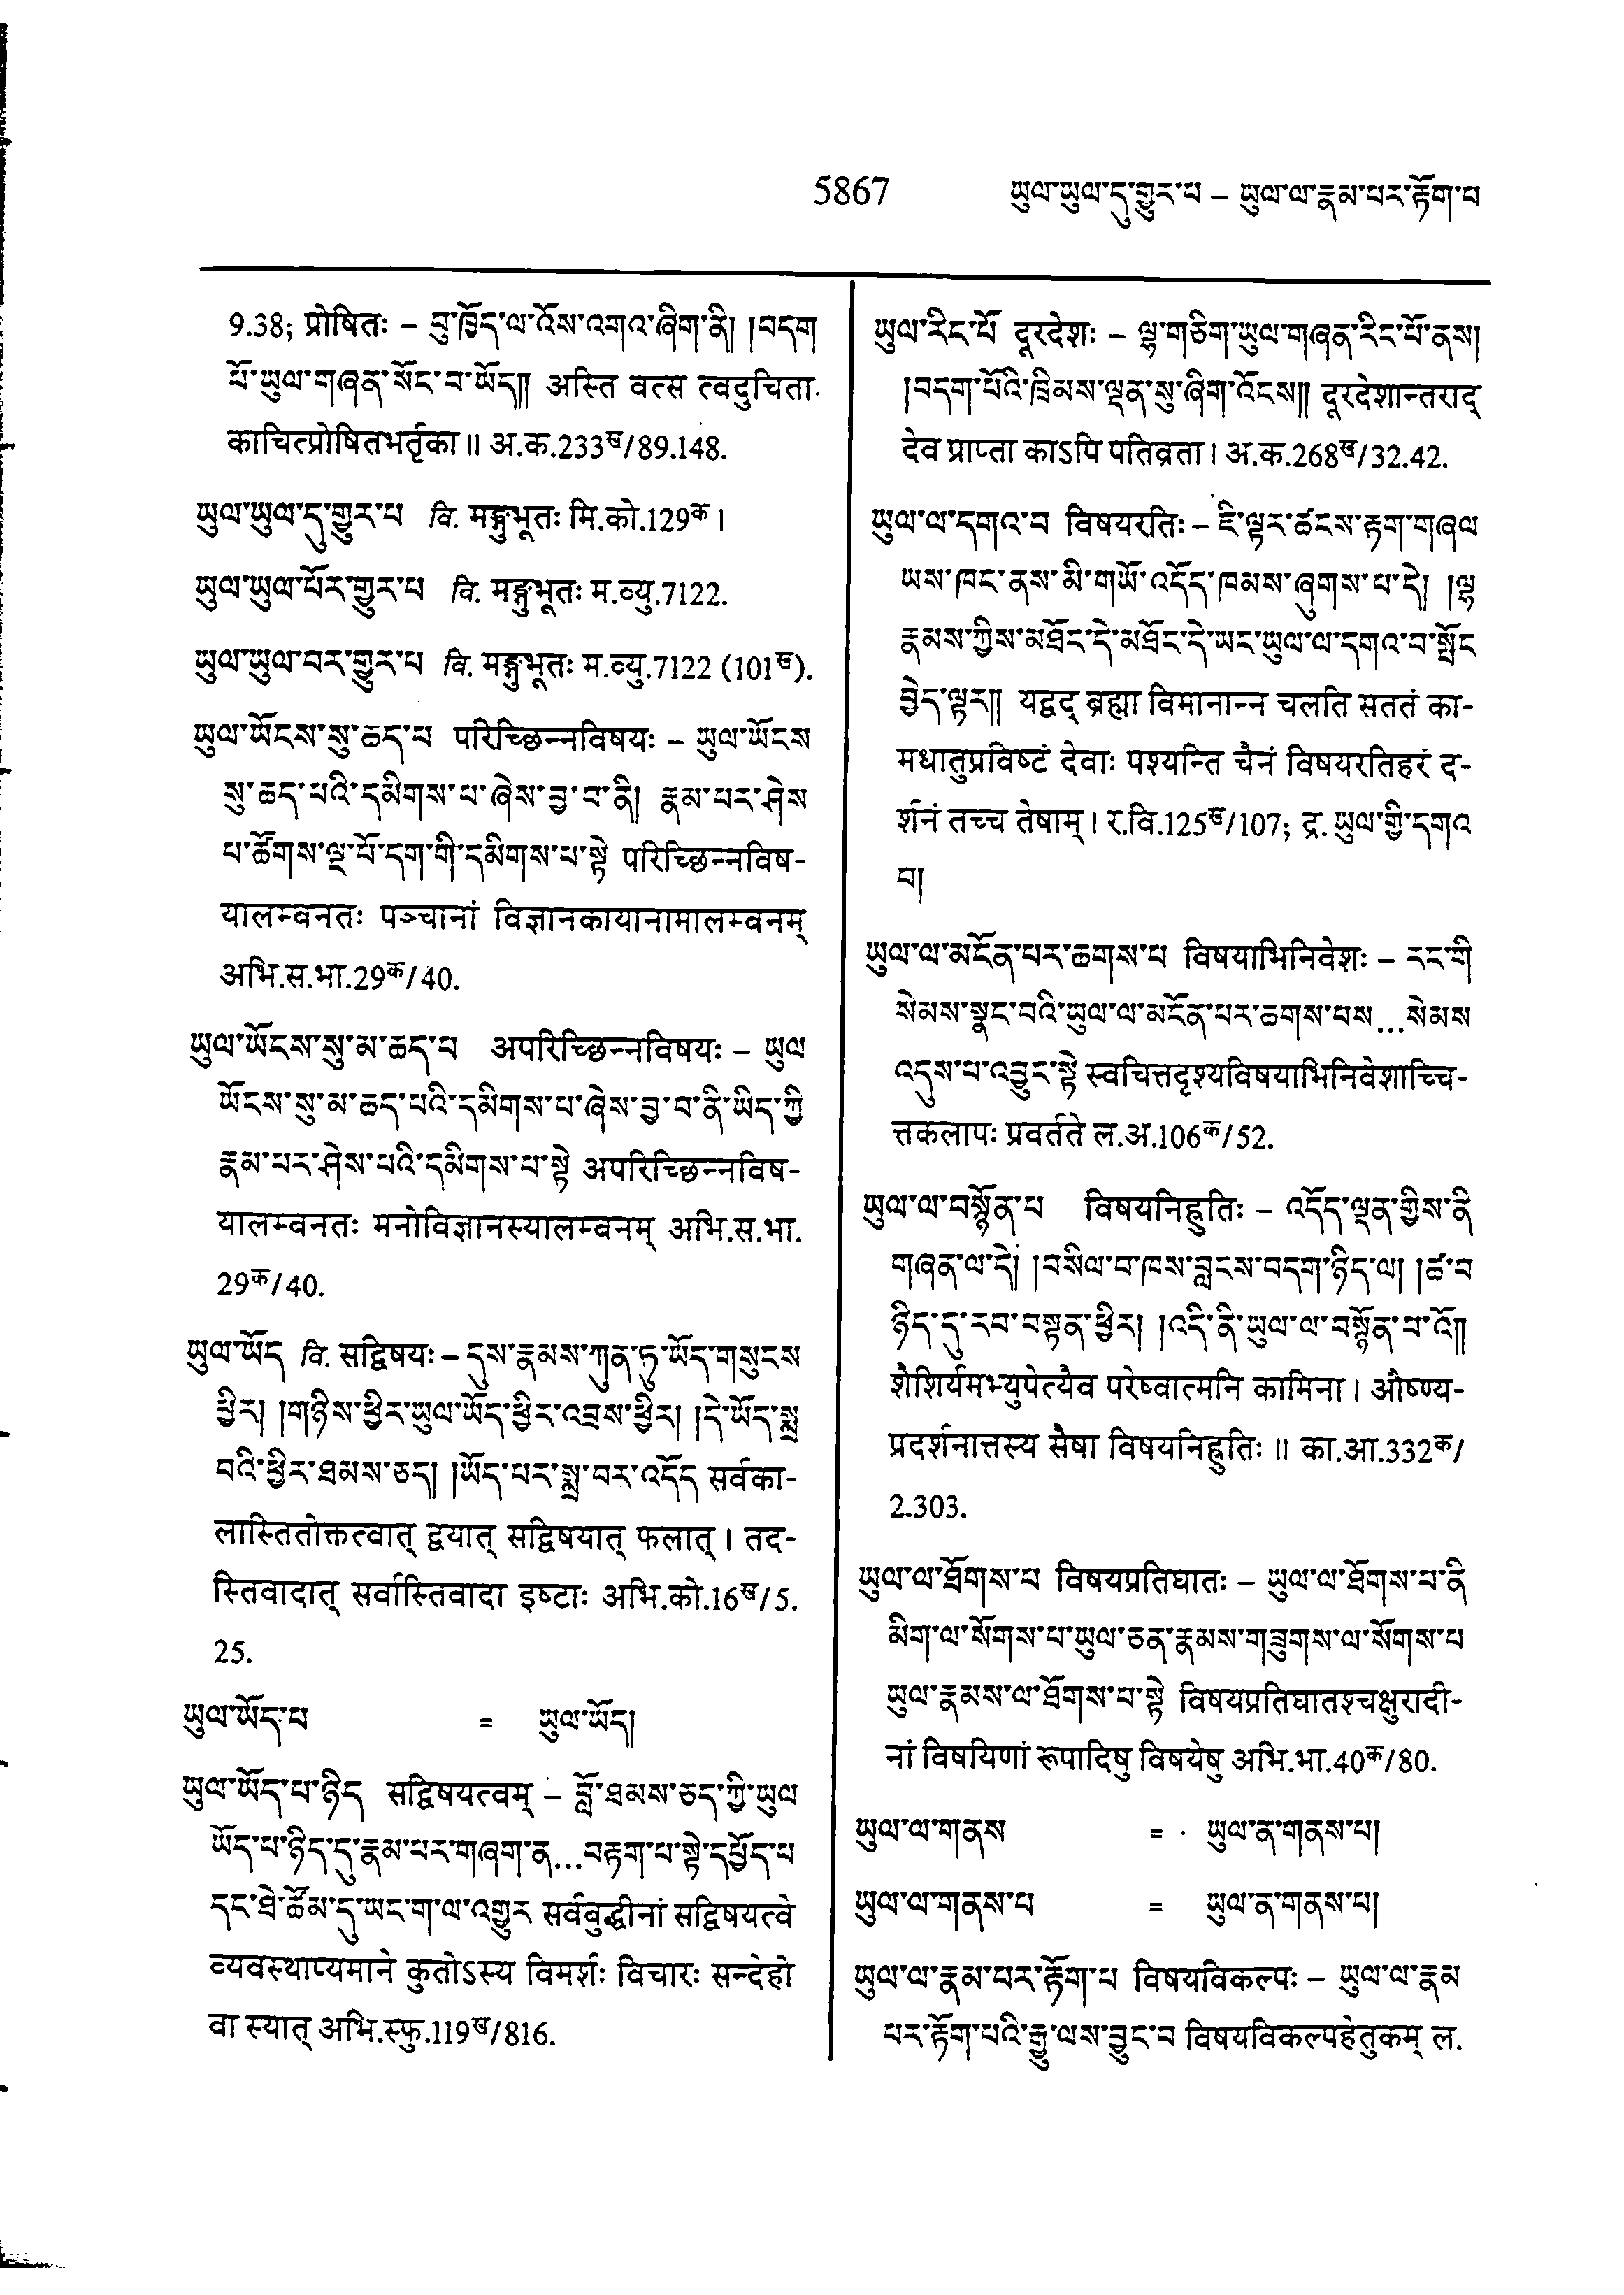 5867 ཡུལ་ཡུལ་དུ་གྱུར་པ – ཡུལ་ལ་རྣམ་པར་རྟོག་པ
9.38; प्रोषितः – བུ་ཁྱོད་ལ་འོས་འགའ་ཞིག་ནི། །བདག
པོ་ཡུལ་གཞན་སོང་བ་ཡོད།། अस्ति वत्स त्वदुचिता
काचित्प्रोषितभर्तृका ॥ अ.क.233ख/89.148.
ཡུལ་ཡུལ་དུ་གྱུར་པ वि. मङ्कुभूतः मि.को.129क ।
ཡུལ་ཡུལ་པོར་གྱུར་པ वि. मङ्कुभूतः म.व्यु.7122.
ཡུལ་ཡུལ་བར་གྱུར་པ वि. मङ्कुभूतः म.व्यु.7122 (101ख).
ཡུལ་ཡོངས་སུ་ཆད་པ परिच्छिन्नविषयः – ཡུལ་ཡོངས
སུ་ཆད་པའི་དམིགས་པ་ཞེས་བྱ་བ་ནི། རྣམ་པར་ཤེས
པ་ཚོགས་ལྔ་པོ་དག་གི་དམིགས་པ་སྟེ परिच्छिन्नविष-
यालम्बनतः पञ्चानां विज्ञानकायानामालम्बनम्
अभि.स.भा.29क/40.
ཡུལ་ཡོངས་སུ་མ་ཆད་པ अपरिच्छिन्नविषयः – ཡུལ
ཡོངས་སུ་མ་ཆད་པའི་དམིགས་པ་ཞེས་བྱ་བ་ནི་ཡིད་ཀྱི
རྣམ་པར་ཤེས་པའི་དམིགས་པ་སྟེ अपरिच्छिन्नविष-
यालम्बनतः मनोविज्ञानस्यालम्बनम् अभि.स.भा.
29क/40.
ཡུལ་ཡོད वि. सद्विषयः – དུས་རྣམས་ཀུན་ཏུ་ཡོད་གསུངས
ཕྱིར། །གཉིས་ཕྱིར་ཡུལ་ཡོད་ཕྱིར་འབྲས་ཕྱིར། །དེ་ཡོད་སྨྲ
བའི་ཕྱིར་ཐམས་ཅད། །ཡོད་པར་སྨྲ་བར་འདོད सर्वका-
लास्तितोक्तत्वात् द्वयात् सद्विषयात् फलात् । तद-
स्तिवादात् सर्वास्तिवादा इष्टाः अभि.को.16ख/5.
25.
ཡུལ་ཡོད་པ = ཡུལ་ཡོད།
ཡུལ་ཡོད་པ་ཉིད सद्विषयत्वम् – བློ་ཐམས་ཅད་ཀྱི་ཡུལ
ཡོད་པ་ཉིད་དུ་རྣམ་པར་གཞག་ན...བརྟག་པ་སྟེ་དཔྱོད་པ
དང་ཐེ་ཚོམ་དུ་ཡང་ག་ལ་འགྱུར सर्वबुद्धीनां सद्विषयत्वे
व्यवस्थाप्यमाने कुतोऽस्य विमर्शः विचारः सन्देहो
वा स्यात् अभि.स्फु.119ख/816.
ཡུལ་རིང་པོ दूरदेशः – ལྷ་གཅིག་ཡུལ་གཞན་རིང་པོ་ནས།
།བདག་པོའི་ཁྲིམས་ལྡན་སུ་ཞིག་འོངས།། दूरदेशान्तराद्
देव प्राप्ता काऽपि पतिव्रता । अ.क.268ख/32.42.
ཡུལ་ལ་དགའ་བ विषयरतिः – ཇི་ལྟར་ཚངས་རྟག་གཞལ
ཡས་ཁང་ནས་མི་གཡོ་འདོད་ཁམས་ཞུགས་པ་དེ། །ལྷ
རྣམས་ཀྱིས་མཐོང་དེ་མཐོང་དེ་ཡང་ཡུལ་ལ་དགའ་བ་སྤོང
བྱེད་ལྟར།། यद्वद् ब्रह्मा विमानान्न चलति सततं का-
मधातुप्रविष्टं देवाः पश्यन्ति चैनं विषयरतिहरं द-
र्शनं तच्च तेषाम् । र.वि.125ख/107; द्र. ཡུལ་གྱི་དགའ
བ།
ཡུལ་ལ་མངོན་པར་ཆགས་པ विषयाभिनिवेशः – རང་གི
སེམས་སྣང་བའི་ཡུལ་ལ་མངོན་པར་ཆགས་པས...སེམས
འདུས་པ་འབྱུང་སྟེ स्वचित्तदृश्यविषयाभिनिवेशाच्चि-
त्तकलापः प्रवर्तते ल.अ.106क/52.
ཡུལ་ལ་བསྙོན་པ विषयनिह्नुतिः – འདོད་ལྡན་གྱིས་ནི
གཞན་ལ་དེ། །བསིལ་བ་ཁས་བླངས་བདག་ཉིད་ལ། །ཚ་བ
ཉིད་དུ་རབ་བསྟན་ཕྱིར། །འདི་ནི་ཡུལ་ལ་བསྙོན་པ་འོ།།
शैशिर्यमभ्युपेत्यैव परेष्वात्मनि कामिना । औष्ण्य-
प्रदर्शनात्तस्य सैषा विषयनिह्नुतिः ॥ का.आ.332क/
2.303.
ཡུལ་ལ་ཐོགས་པ विषयप्रतिघातः – ཡུལ་ལ་ཐོགས་པ་ནི
མིག་ལ་སོགས་པ་ཡུལ་ཅན་རྣམས་གཟུགས་ལ་སོགས་པ
ཡུལ་རྣམས་ལ་ཐོགས་པ་སྟེ विषयप्रतिघातश्चक्षुरादी-
नां विषयिणां रूपादिषु विषयेषु अभि.भा.40क/80.
ཡུལ་ལ་གནས = ཡུལ་ན་གནས་པ།
ཡུལ་ལ་གནས་པ = ཡུལ་ན་གནས་པ།
ཡུལ་ལ་རྣམ་པར་རྟོག་པ विषयविकल्पः – ཡུལ་ལ་རྣམ
པར་རྟོག་པའི་རྒྱུ་ལས་བྱུང་བ विषयविकल्पहेतुकम् ल.